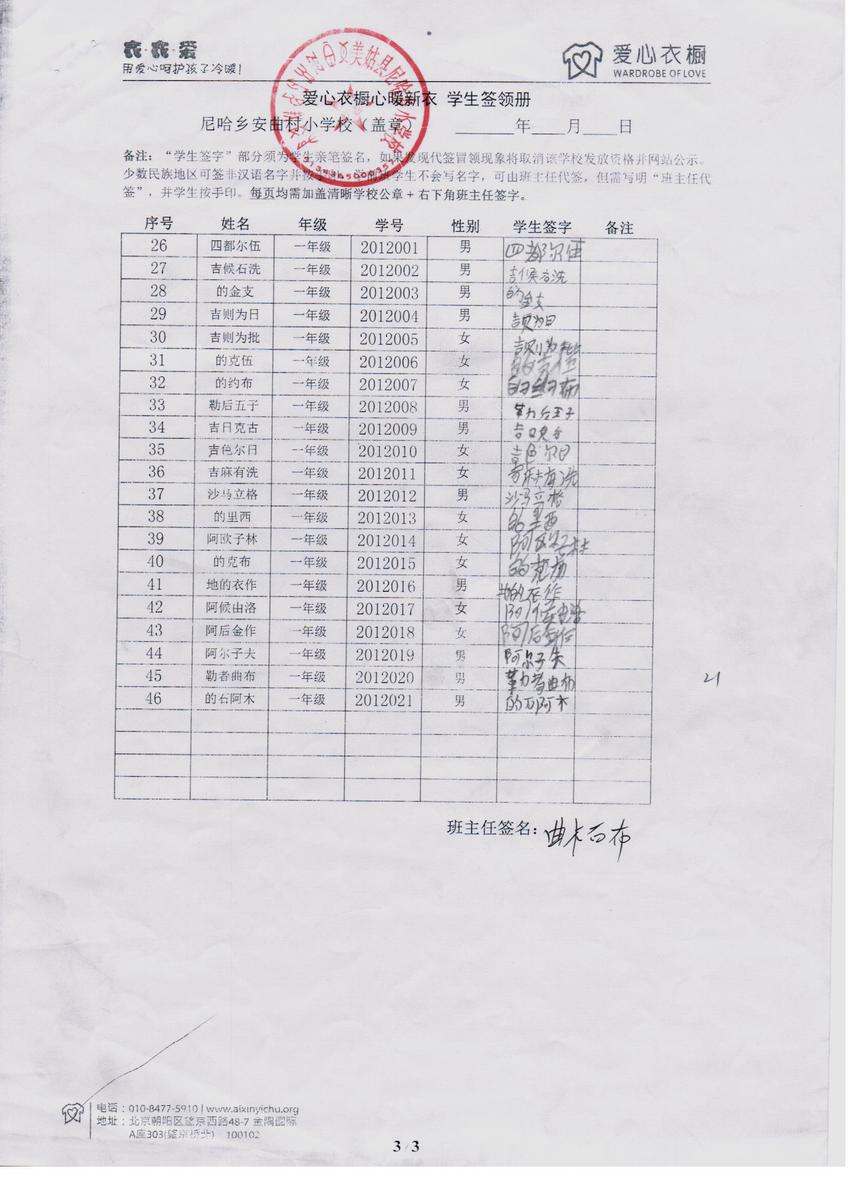 衣·衣·爱
用爱心呵护孩子冷暖!
爱心衣橱
WARDROBE OF LOVE
爱心衣橱心暖新衣 学生签领册
尼哈乡安曲村小学校（盖章） ____年____月____日
备注：“学生签字”部分须为学生亲笔签名，如果发现代签冒领现象将取消该学校发放资格并网站公示。
少数民族地区可签非汉语名字并按 学生不会写名字，可由班主任代签，但需写明“班主任代
签”，并学生按手印。每页均需加盖清晰学校公章+右下角班主任签字。
序号 姓名 年级 学号 性别 学生签字 备注
26 四都尔伍 一年级 2012001 男 四都尔伍
27 吉候石洗 一年级 2012002 男 吉候石洗
28 的金支 一年级 2012003 男 的金支
29 吉则为日 一年级 2012004 男 吉则为日
30 吉则为批 一年级 2012005 女 吉则为批
31 的克伍 一年级 2012006 女 的克伍
32 的约布 一年级 2012007 女 的约布
33 勒后五子 一年级 2012008 男 勒后五子
34 吉日克古 一年级 2012009 男 吉日克古
35 吉色尔日 一年级 2012010 女 吉色尔日
36 吉麻有洗 一年级 2012011 女 吉麻有洗
37 沙马立格 一年级 2012012 男 沙马立格
38 的里西 一年级 2012013 女 的里西
39 阿欧子林 一年级 2012014 女 阿欧子林
40 的克布 一年级 2012015 女 的克布
41 地的衣作 一年级 2012016 男 地的衣作
42 阿候由洛 一年级 2012017 女 阿候由洛
43 阿后金作 一年级 2012018 女 阿后金作
44 阿尔子夫 一年级 2012019 男 阿尔子失
45 勒者曲布 一年级 2012020 男 勒者曲布
46 的石阿木 一年级 2012021 男 的石阿木
21
班主任签名：曲卡百布
电话：010-8477-5910 | www.aixinyichu.org
地址：北京朝阳区望京西路48-7 金隅国际
A座303(望京桥北) 100102
3 / 3